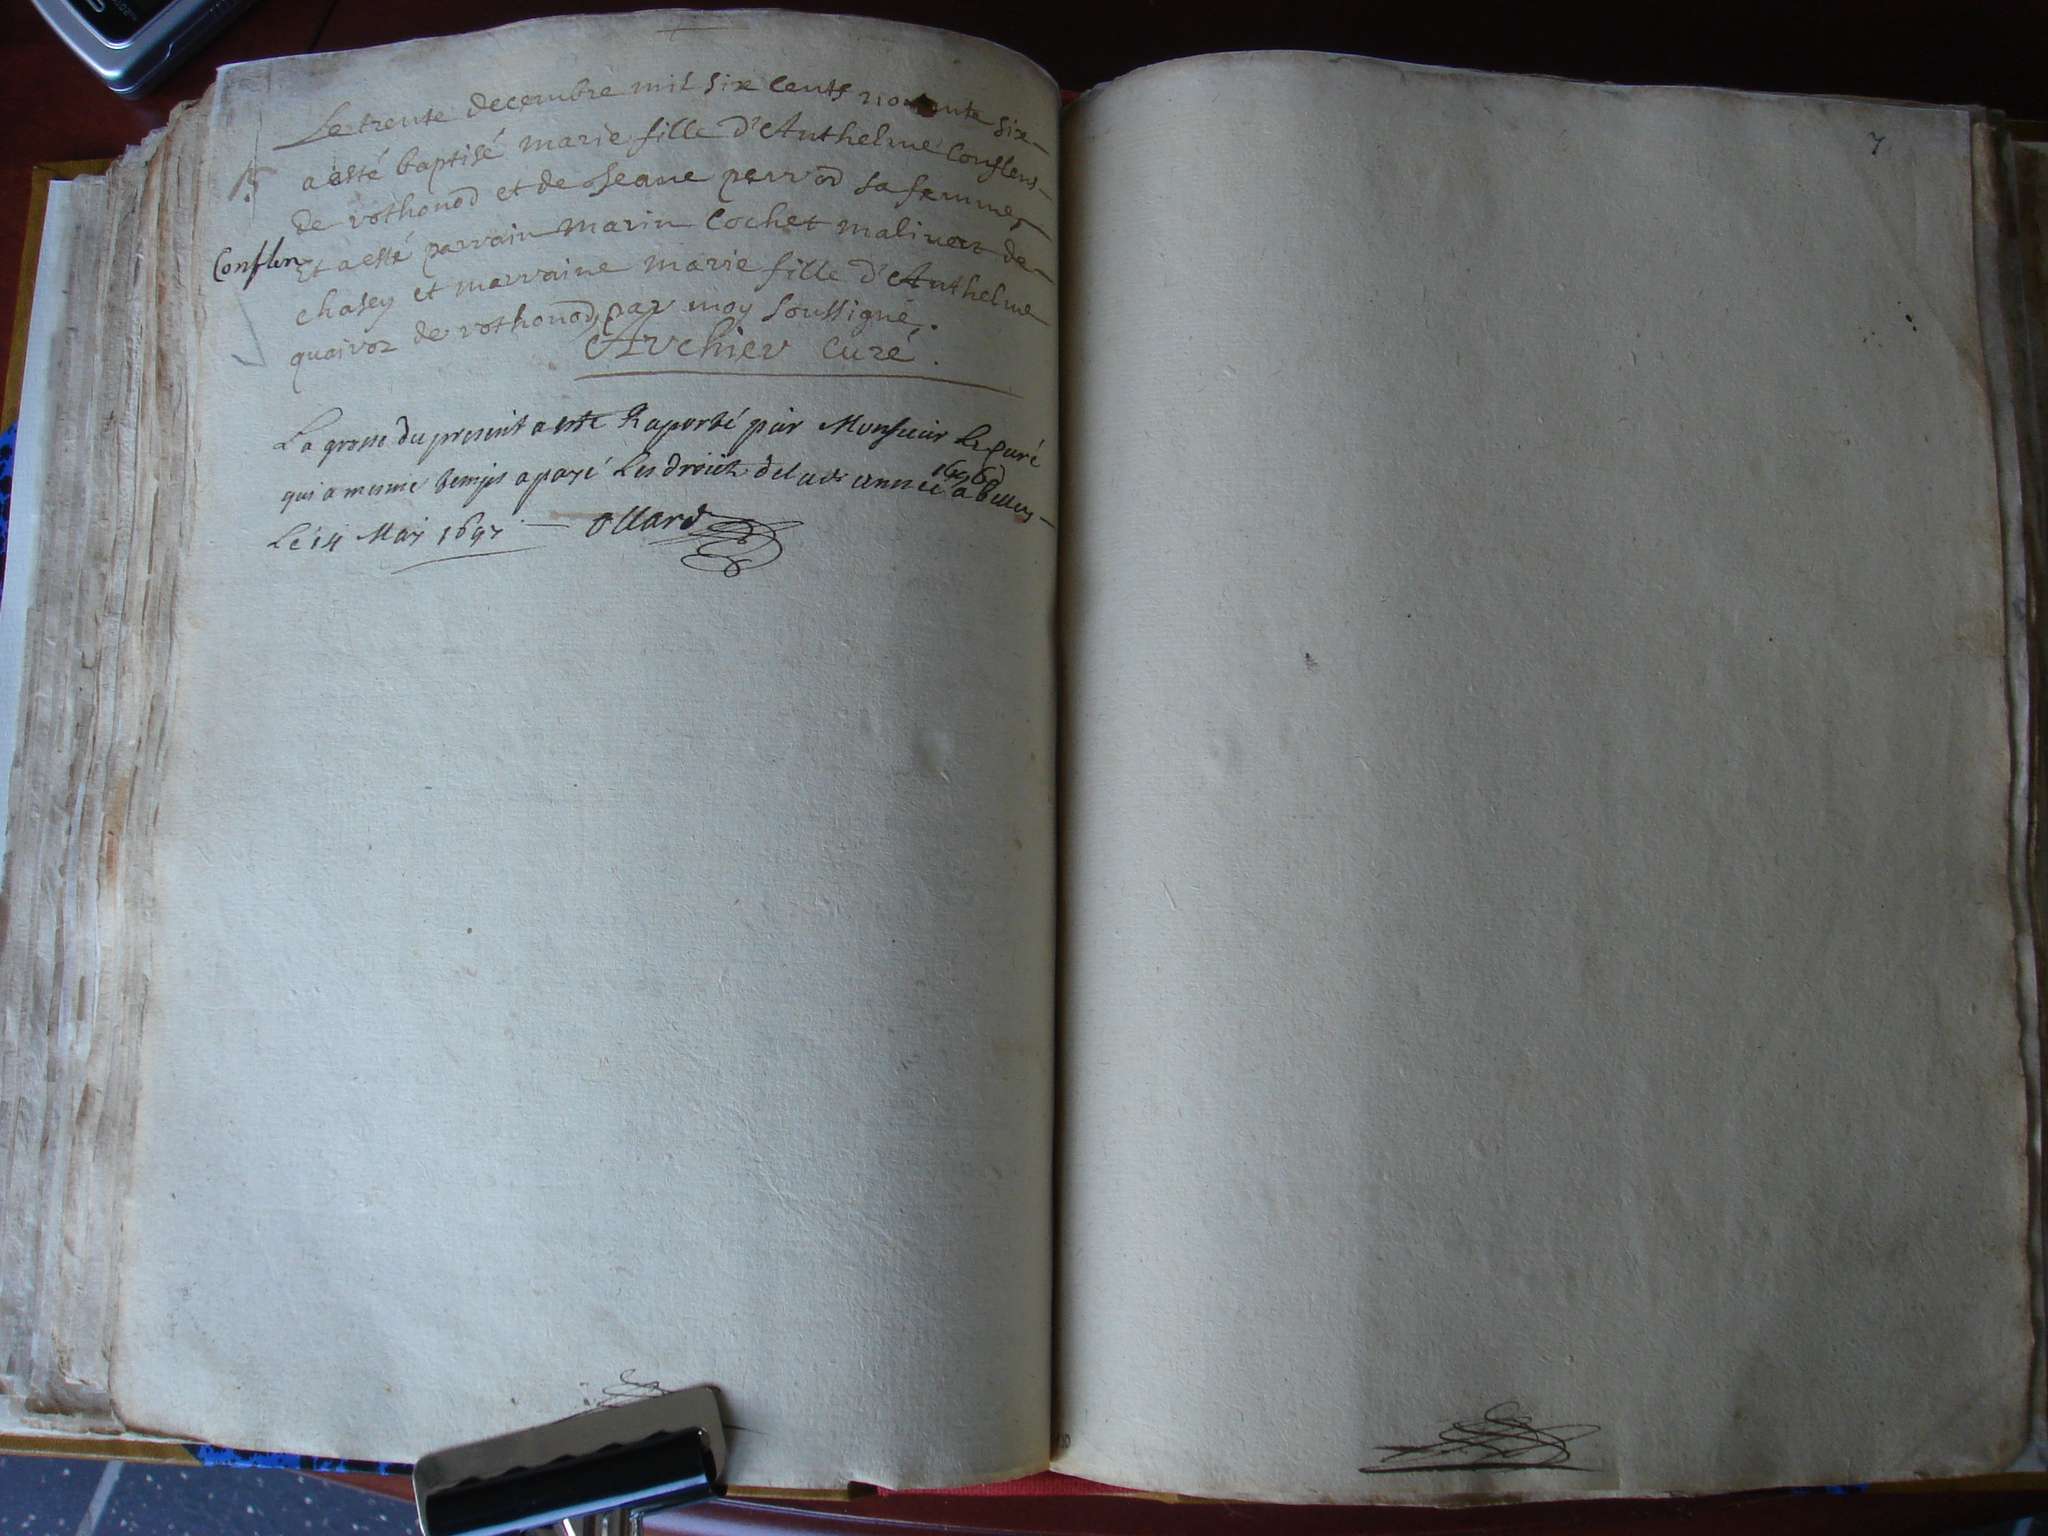 Le trente decembre mil six cents nonente six
a esté baptisé marie fille d'Anthelme Conflens
de rothonod et de Jeane perrod sa femme
Et a esté parrain marin Cochet malivert de
chasey et marraine marie fille d'Anthelme
quaivoz de rothonod, par moy soussigné.
Archier curé.
B
Conflen
La grosse du present a esté Raporté par Monsieur Le Curé
qui a mesme temps a payé Les droits de lade année 1696 a belley
Le 14 May 1697 Ollard
7